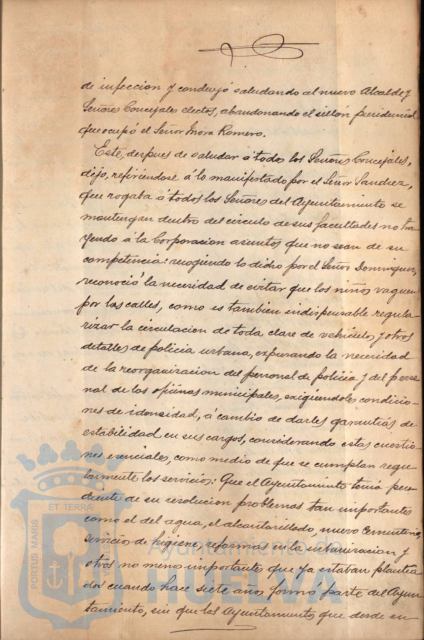 de infeccion y concluyó saludando al nuevo Alcalde y
Señores Concejales electos, abandonando el sillón presidencial
que ocupó el Señor Mora Romero.
Este, despues de saludar á todos los Señores Concejales,
dijo, refiriéndose á lo manifestado por el Señor Sanchez,
que rogaba á todos los Señores del Ayuntamiento se
mantengan dentro del circulo de sus facultades no tra
yendo á la Corporacion asuntos que no sean de su
competencia: recogiendo lo dicho por el Señor Dominguez,
reconoció la necesidad de evitar que los niños vaguen
por las calles, como es tambien indispensable regula
rizar la circulacion de toda clase de vehiculos y otros
detalles de policia urbana, expresando la necesidad
de la reorganizacion del personal de policia y del perso
nal de las oficinas municipales, exigiendoles condicio-
nes de idoneidad, á cambio de darles garantias de
estabilidad en sus cargos, considerando estas cuestio-
nes esenciales, como medio de que se cumplan regu
larmente los servicios: Que el Ayuntamiento tenia pen
diente de su resolucion problemas tan importantes
como el del agua, el alcantarillado, nuevo Cementerio,
servicio de higiene, reformas en la urbanizacion y
otros no menos importantes que ya estaban plantea
dos cuando hace siete años formó parte del Ayun
tamiento, sin que los Ayuntamientos que desde en
PORTUS MARIS
ET TERRÆ
Ayuntamiento de
HUELVA